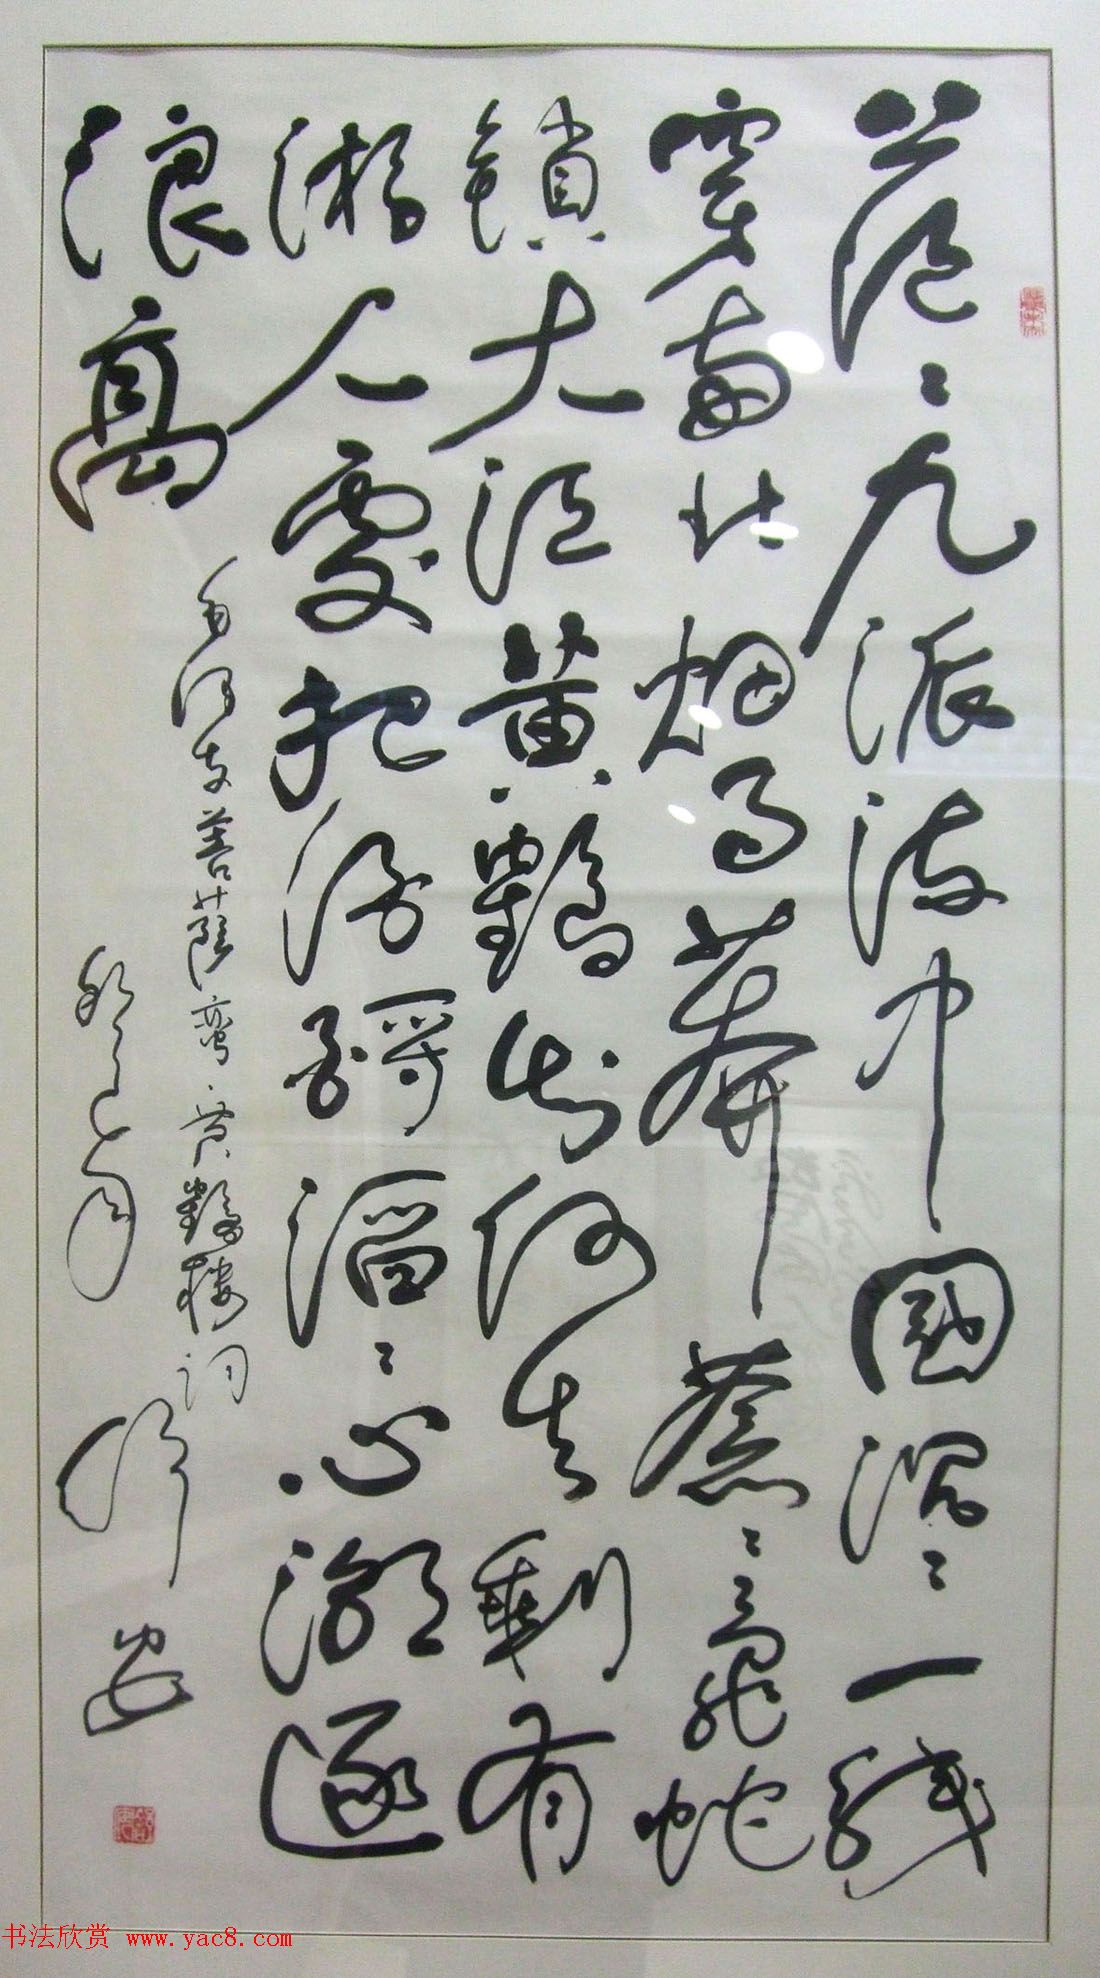 茫〻九派流中國沉〻一线
穿南北烟雨莽蒼〻龜蛇
鎖大江黄鶴知何去剩有
游人處把酒酹滔〻心潮逐
浪高
毛泽东菩薩蛮·黄鶴楼词
书法欣赏 www.yac8.com